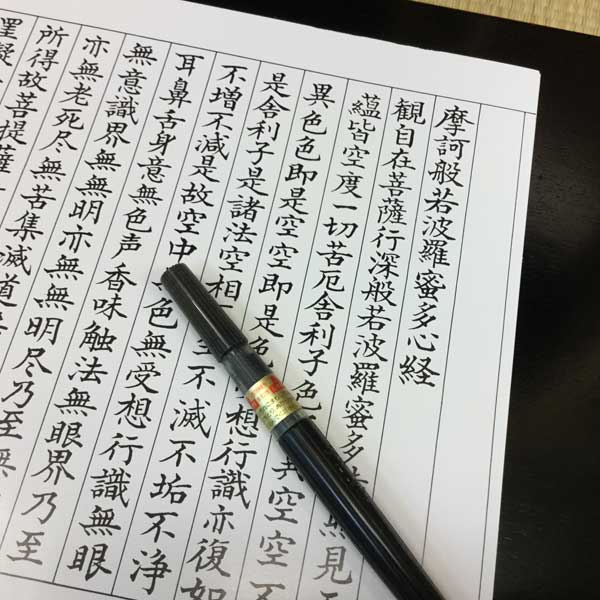 摩訶般若波羅蜜多心経
観自在菩薩行深般若波羅蜜多照見
蘊皆空度一切苦厄舎利子色異空空不
異色色即是空空即是色想行識亦復如
是舎利子是諸法空相不滅不垢不浄
不増不減是故空中色無受想行識無眼
耳鼻舌身意無色声香味触法無眼界乃至
無意識界無無明亦無無明尽乃至無
亦無老死尽無苦集滅道
所得故菩提薩
罣礙